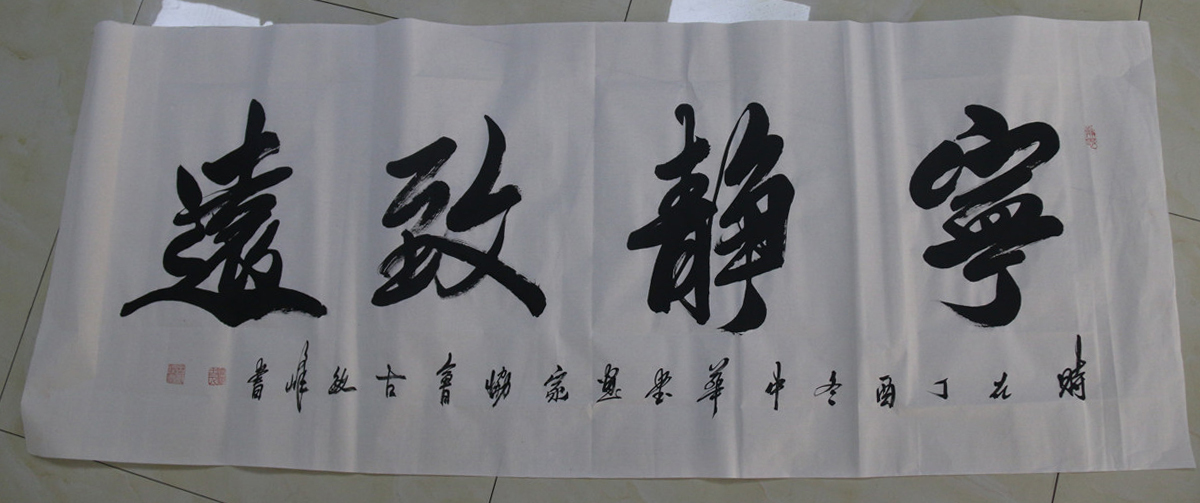 寧靜致遠
時在丁酉冬中華書畫家協會古敏峰書